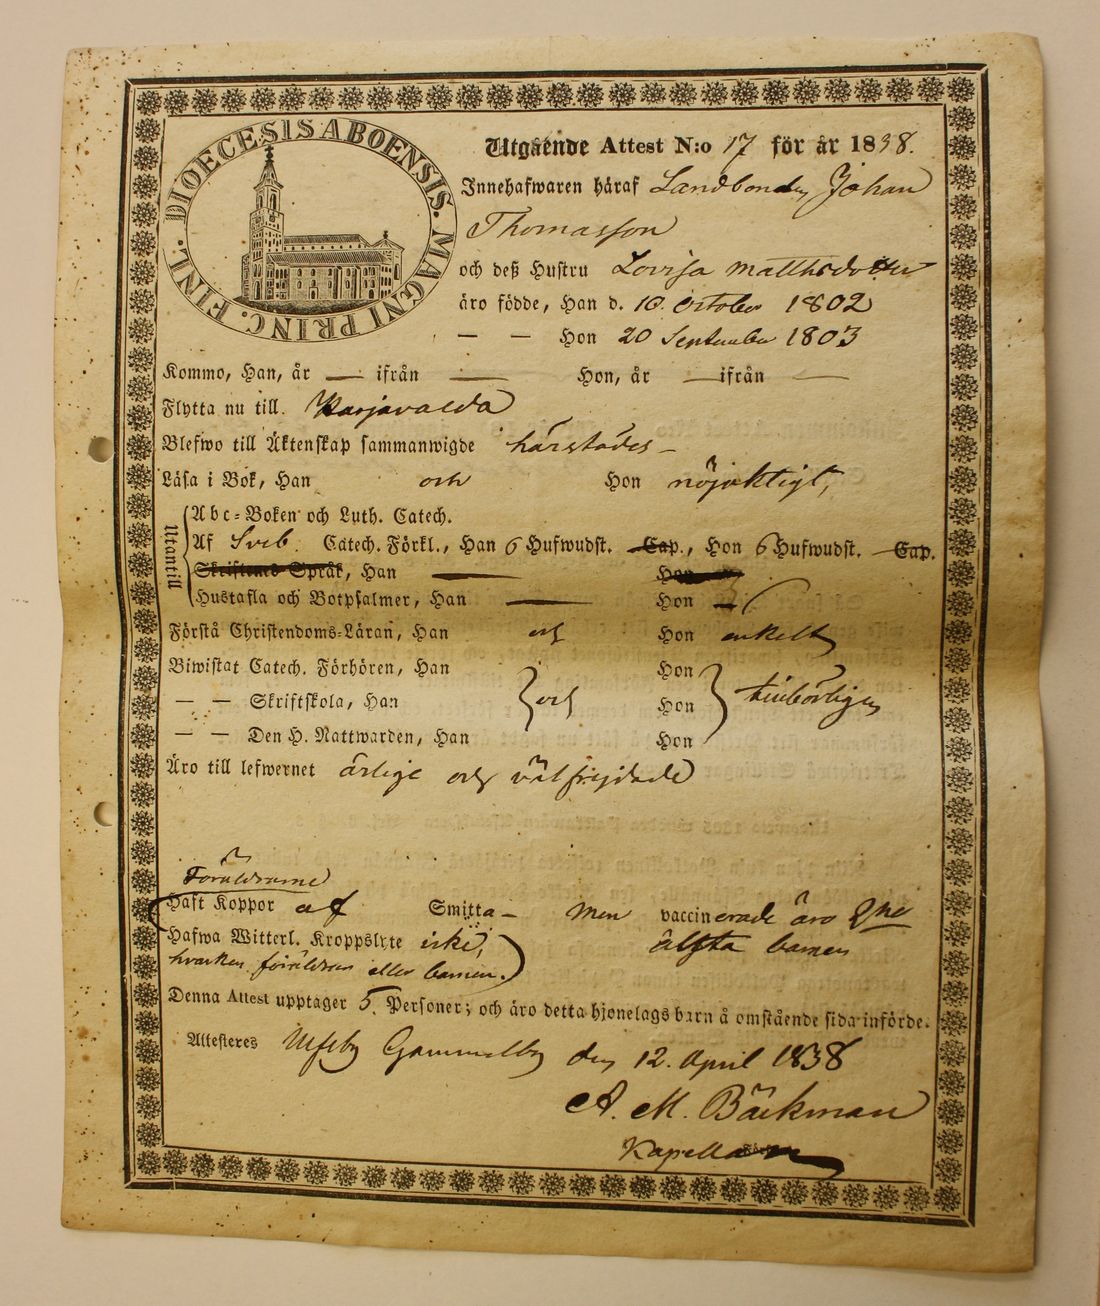 DIOECESIS ABOENSIS. MAGNI PRINC. FINL.
Utgående Attest N:o 17 för år 1838.
Innehafwaren häraf Landbonden Johan
Thomasson
och deß Hustru Lovisa Matthsdotter
äro födde, Han d. 10. October 1802
— — Hon 20 September 1803
Kommo, Han, år — ifrån — Hon, år — ifrån —
Flytta nu till. Karjavalda
Blefwo till Äktenskap sammanwigde härstädes —
Läsa i Bok, Han och Hon nöjaktigt,
Utantill
Abc-Boken och Luth. Catech.
Af Sveb. Catech. Förkl., Han 6 Hufwudst. Cap., Hon 6 Hufwudst. Cap.
Skriftenes Språk, Han — Hon
Hustafla och Botpsalmer, Han — Hon —
Förstå Christendoms-Läran, Han och Hon enkelt
Biwistat Catech. Förhören, Han Hon
— — Skriftskola, Han och Hon tillbörligen
— — Den H. Nattwarden, Han Hon
Äro till lefwernet ärlige och välfrejdade
Föräldrarne
Haft Koppor af Smitta — men vaccinerade äro 2ne
Hafwa Witterl. Kroppslyte icke, älsta barnen
hvarken föräldrar eller barnen.)
Denna Attest upptager 5. Personer; och äro detta hjonelags barn å omstående sida införde.
Attesteres Ulfsby Gammelby den 12. April 1838
A. M. Bäckman
Kapellan